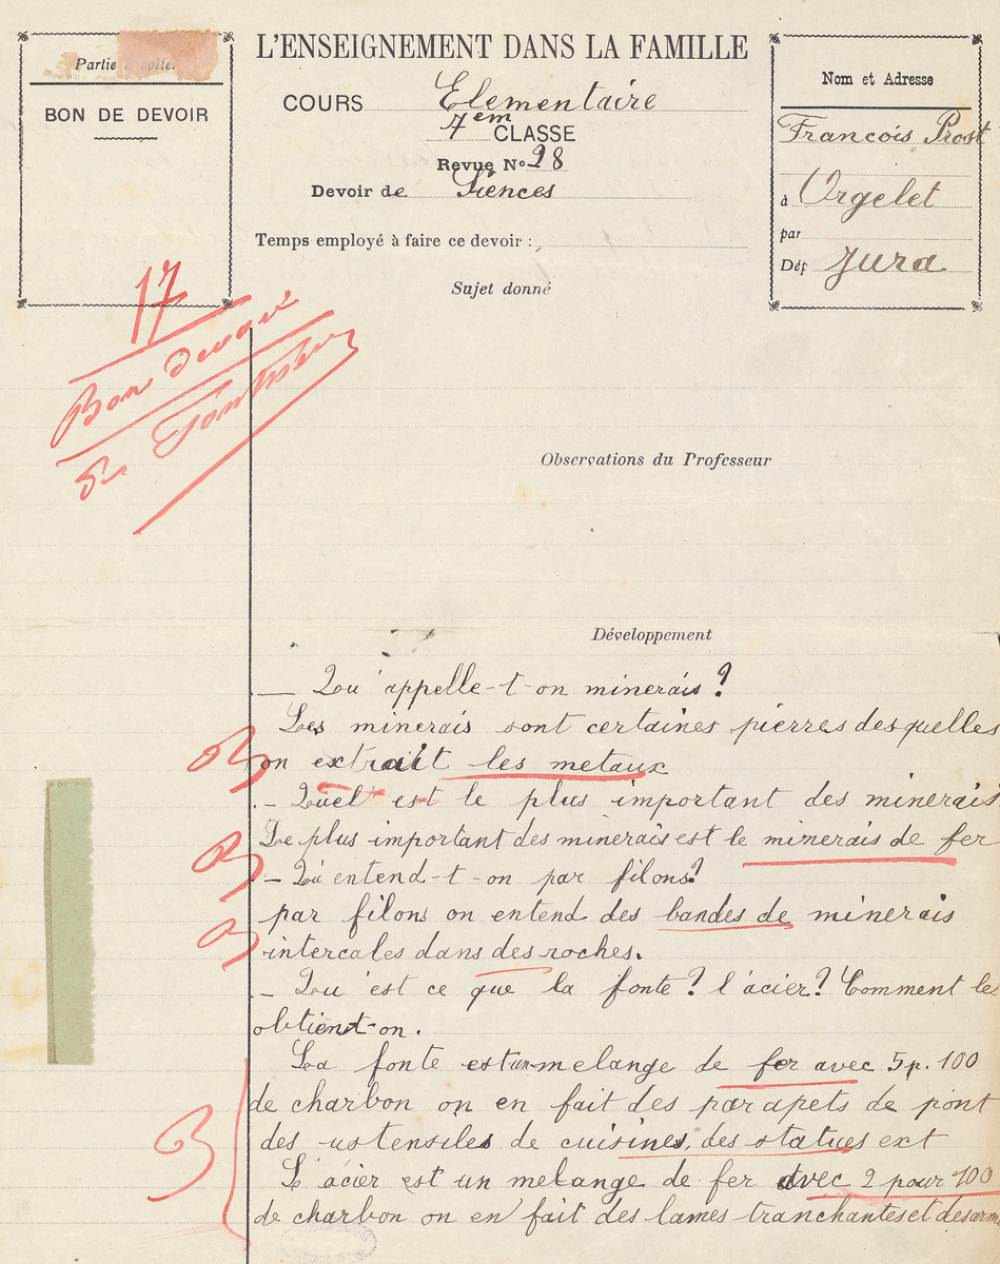 L'ENSEIGNEMENT DANS LA FAMILLE
Partie à coller
BON DE DEVOIR
COURS Elementaire
7em CLASSE
Revue No 28
Devoir de Siences
Temps employé à faire ce devoir :
Sujet donné
Nom et Adresse
Francois Prost
à Orgelet
par
Dép Jura
17
Bon devoir
Observations du Professeur
Développement
— Qu'appelle-t-on minerais ?
Les minerais sont certaines pierres desquelles
on extrait les metaux
- Quel est le plus important des minerais
Le plus important des minerais est le minerais de fer
- Qu'entend-t-on par filons?
par filons on entend des bandes de minerais
intercales dans des roches.
- Qu'est ce que la fonte? l'acier? Comment les
obtient-on.
La fonte est un melange de fer avec 5 p. 100
de charbon on en fait des parapets de pont
des ustensiles de cuisines, des statues ext
L'acier est un melange de fer avec 2 pour 100
de charbon on en fait des lames tranchantes et des arm